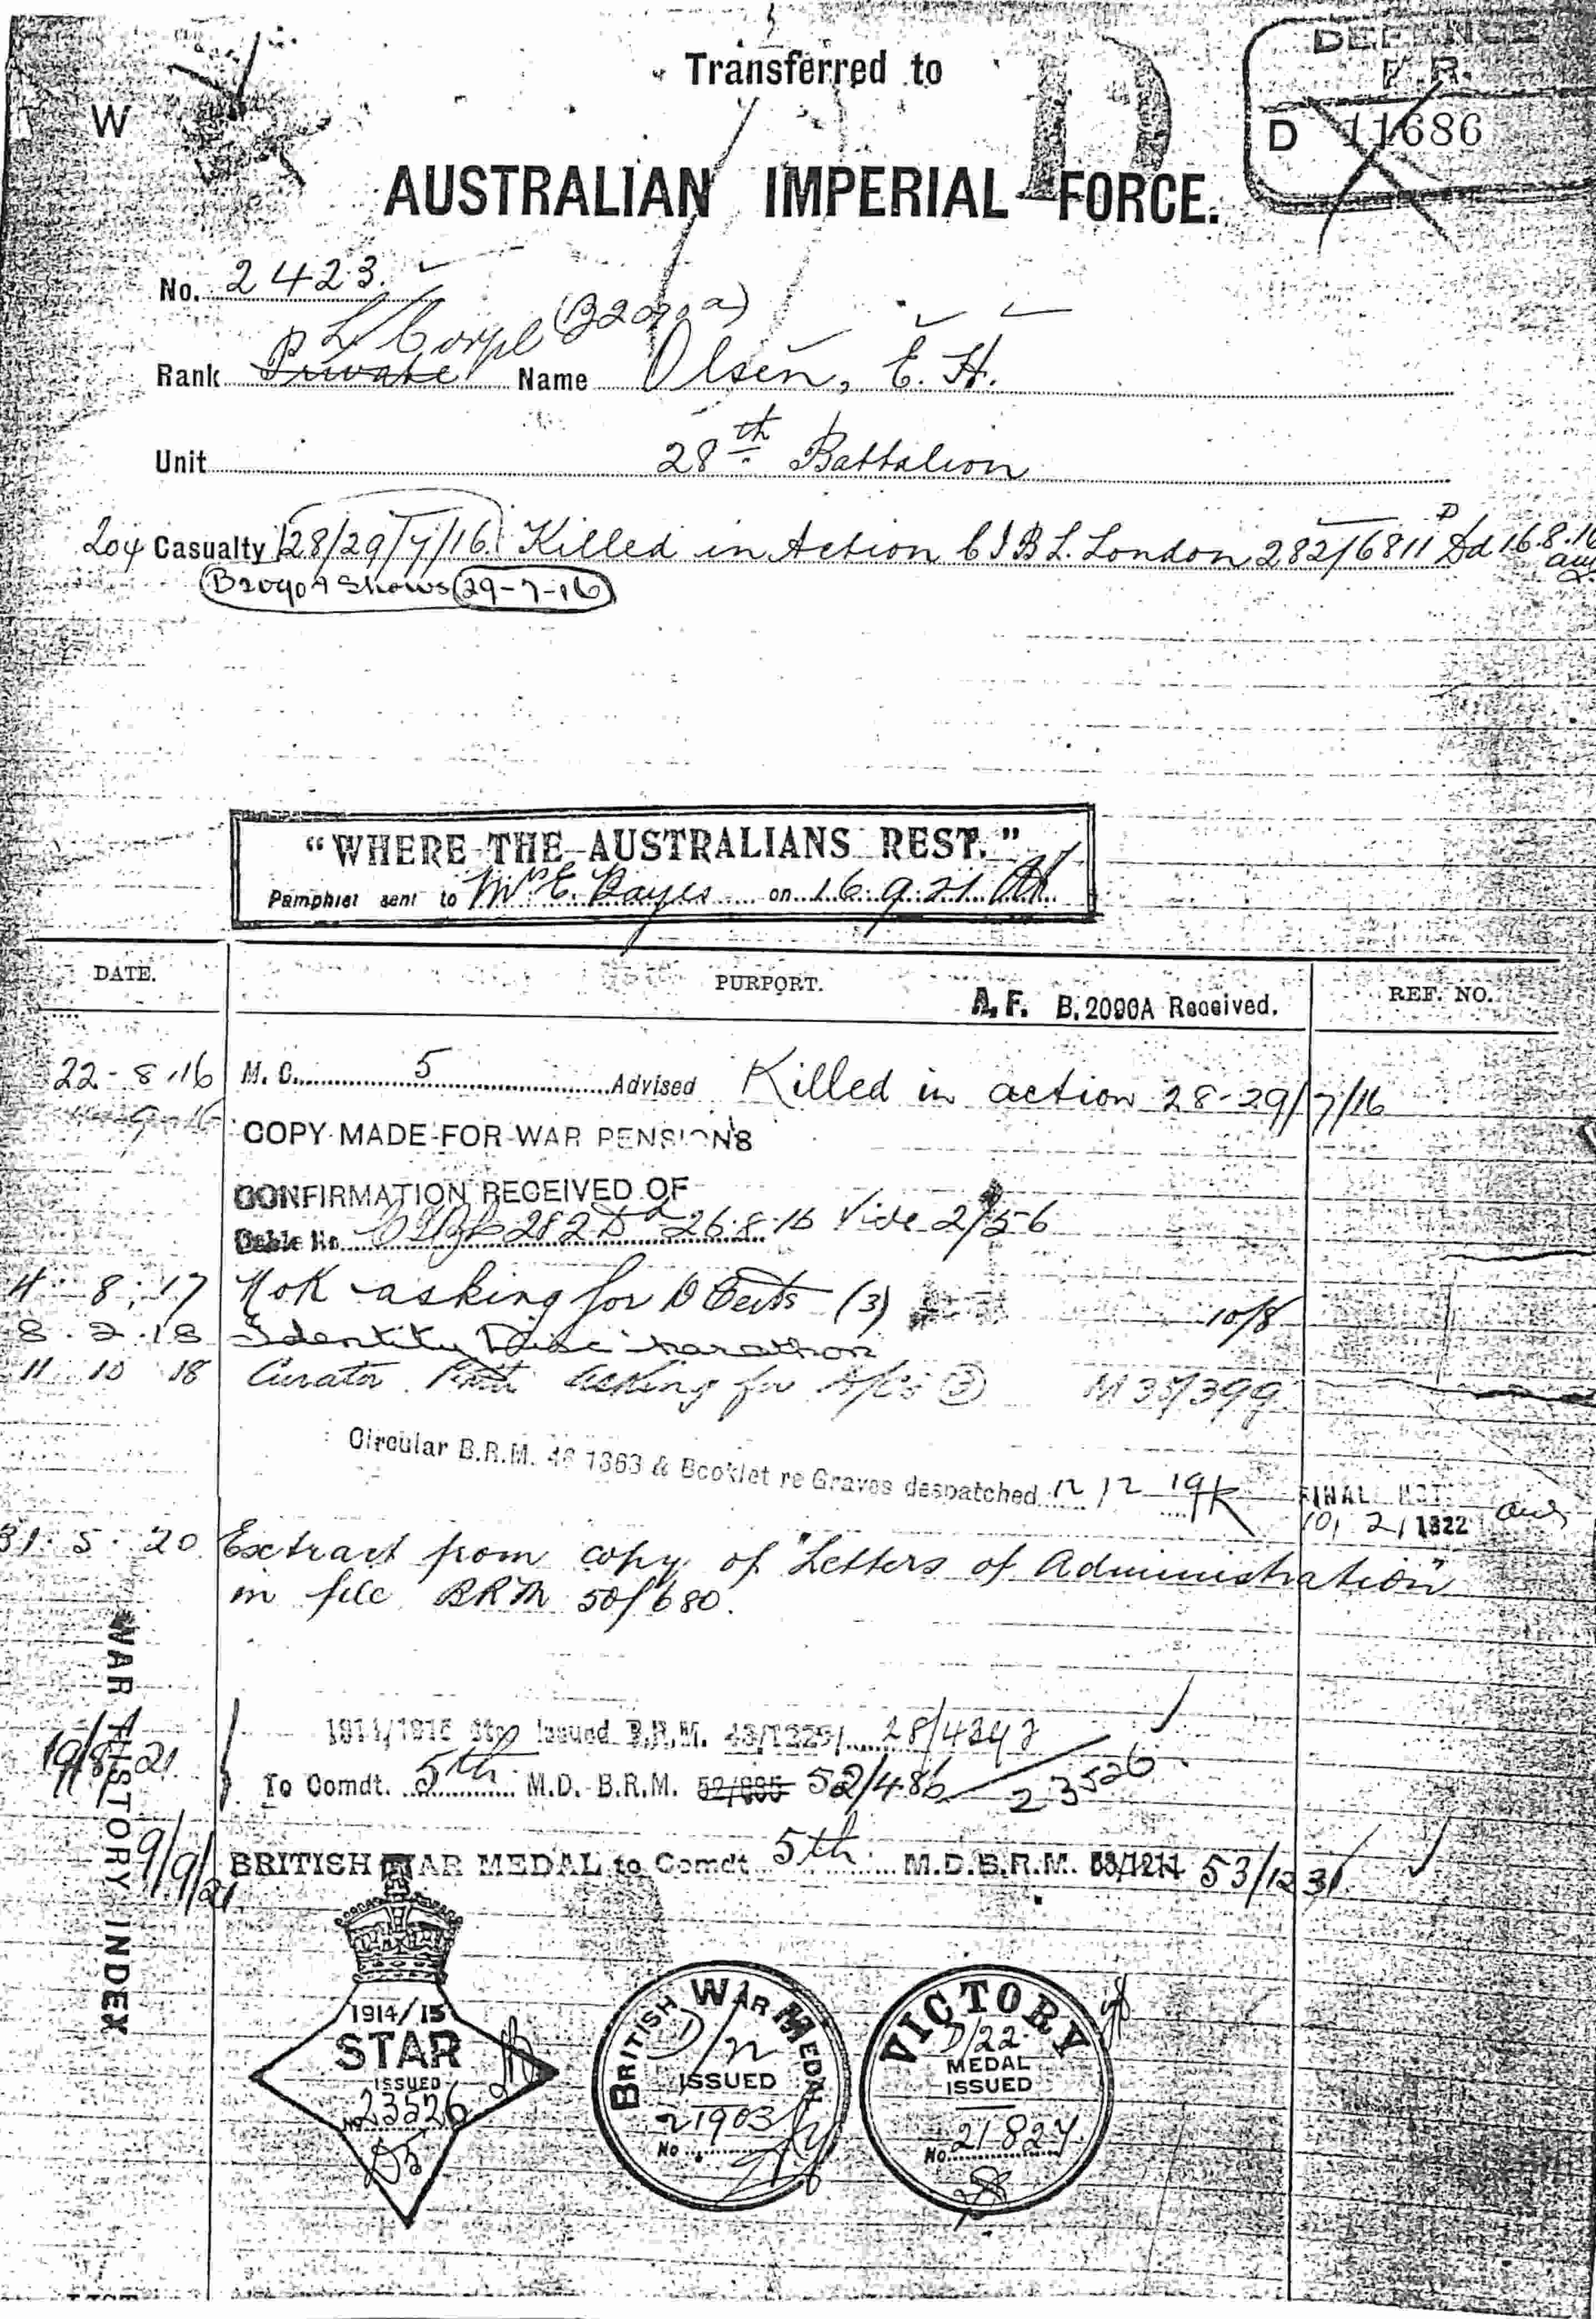 Transferred to
D
DEFENCE
W
D 11686
AUSTRALIAN IMPERIAL FORCE.
No. 2423.
L/Corpl
Rank Private Name Olsen, E. H.
Unit 28th Battalion
Casualty 28/29/7/16. Killed in Action C I B L. London 282/6811 Dd 16.8.16
Shows 29-7-16
"WHERE THE AUSTRALIANS REST."
Pamphlet sent to Mrs E. Bayes on 16.9.21
DATE. PURPORT. REF. NO.
A.F. B.2090A Received.
22-8-16 M.C. 5 Advised Killed in action 28-29/7/16
COPY MADE FOR WAR PENSIONS
CONFIRMATION RECEIVED OF
Cable No. 282 Dd 26.8.16 Vide 2/56
4.8.17 NoK asking for D Certs (3) 10/8
8.2.18 Identity Disc
11 10 18 Curator asking for (3) M 35/399
Circular B.R.M. 46 1363 & Booklet re Graves despatched 12 12 19
FINAL NOT.
10/2/1922
31.5.20 Extract from copy of "Letters of Administration"
in file BRM 50/680.
WAR HISTORY INDEX
1914/1915 Star Issued B.R.M. 43/1229/
19/8/21 To Comdt. 5th M.D. B.R.M. 52/486 23526
9/9/21 BRITISH WAR MEDAL to Comdt 5th M.D.B.R.M. 53/1231
1914/15
STAR
ISSUED
No 23526
BRITISH WAR MEDAL
ISSUED
21903
No
VICTORY
D/22
MEDAL
ISSUED
No. 21827